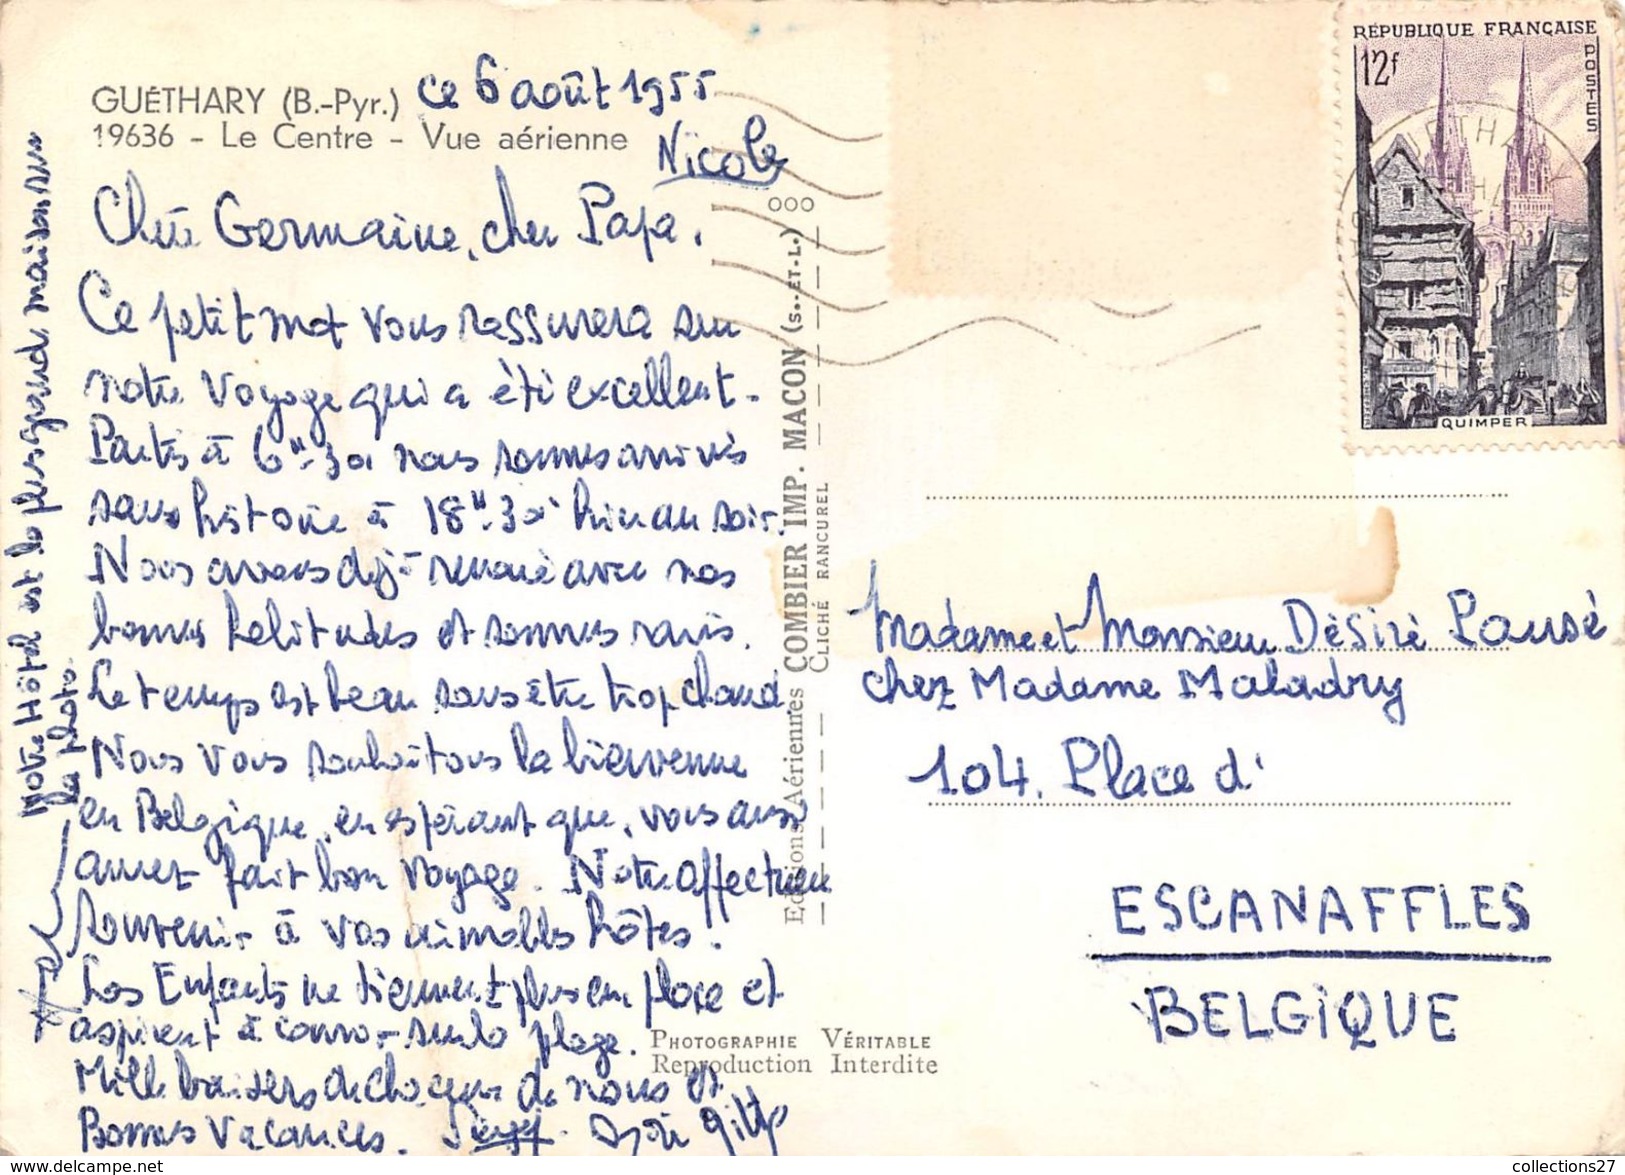 GUÉTHARY (B.-Pyr.) ce 6 août 1955
19636 - Le Centre - Vue aérienne
Nicole
Chère Germaine, cher Papa.
Ce petit mot vous rassurera sur
notre voyage qui a été excellent.
Partis à 6 H. 30 nous sommes arrivés
sans histoire à 18 H. 30 hier au soir.
Nous avons déjà renoué avec nos
bonnes habitudes et sommes ravis.
Le temps est beau sans être trop chaud
Nous vous souhaitons la bienvenue
en Belgique, en espérant que, vous aussi
aurez fait bon voyage. Notre affectueux
souvenir à vos aimables hôtes.
Les Enfants ne tiennent plus en place et
aspirent à courir sur la plage.
Mille baisers de chacun de nous et
Bonnes Vacances.
Notre Hôtel est la plus grande maison sur
la photo.
OOO
Editions Aériennes COMBIER IMP. MACON (S.-ET-L.)
CLICHÉ RANCUREL
PHOTOGRAPHIE VÉRITABLE
Reproduction Interdite
RÉPUBLIQUE FRANÇAISE
12f
POSTES
QUIMPER
GUETHARY
Madame et Monsieur Désiré Pausé
chez Madame Maladry
104. Place d'
ESCANAFFLES
BELGIQUE
collections27